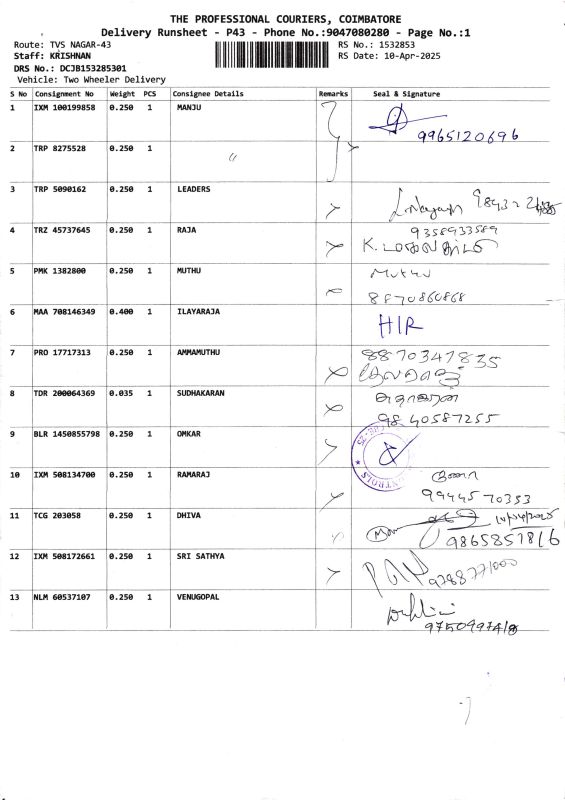 THE PROFESSIONAL COURIERS, COIMBATORE
Delivery Runsheet - P43 - Phone No.:9047080280 - Page No.:1
Route: TVS NAGAR-43 RS No.: 1532853
Staff: KRISHNAN RS Date: 10-Apr-2025
DRS No.: DCJB153285301
Vehicle: Two Wheeler Delivery
S No Consignment No Weight PCS Consignee Details Remarks Seal & Signature
1 IXM 100199858 0.250 1 MANJU
9965120696
2 TRP 8275528 0.250 1 〃
3 TRP 5090162 0.250 1 LEADERS
4 TRZ 45737645 0.250 1 RAJA 9358933589
5 PMK 1382800 0.250 1 MUTHU
8870860868
6 MAA 708146349 0.400 1 ILAYARAJA
HIR
7 PRO 17717313 0.250 1 AMMAMUTHU 8870347835
8 TDR 200064369 0.035 1 SUDHAKARAN
9840587255
9 BLR 1450855798 0.250 1 OMKAR
10 IXM 508134700 0.250 1 RAMARAJ
9944570353
11 TCG 203058 0.250 1 DHIVA
9865851816
12 IXM 508172661 0.250 1 SRI SATHYA
9788771000
13 NLM 60537107 0.250 1 VENUGOPAL
9750997418